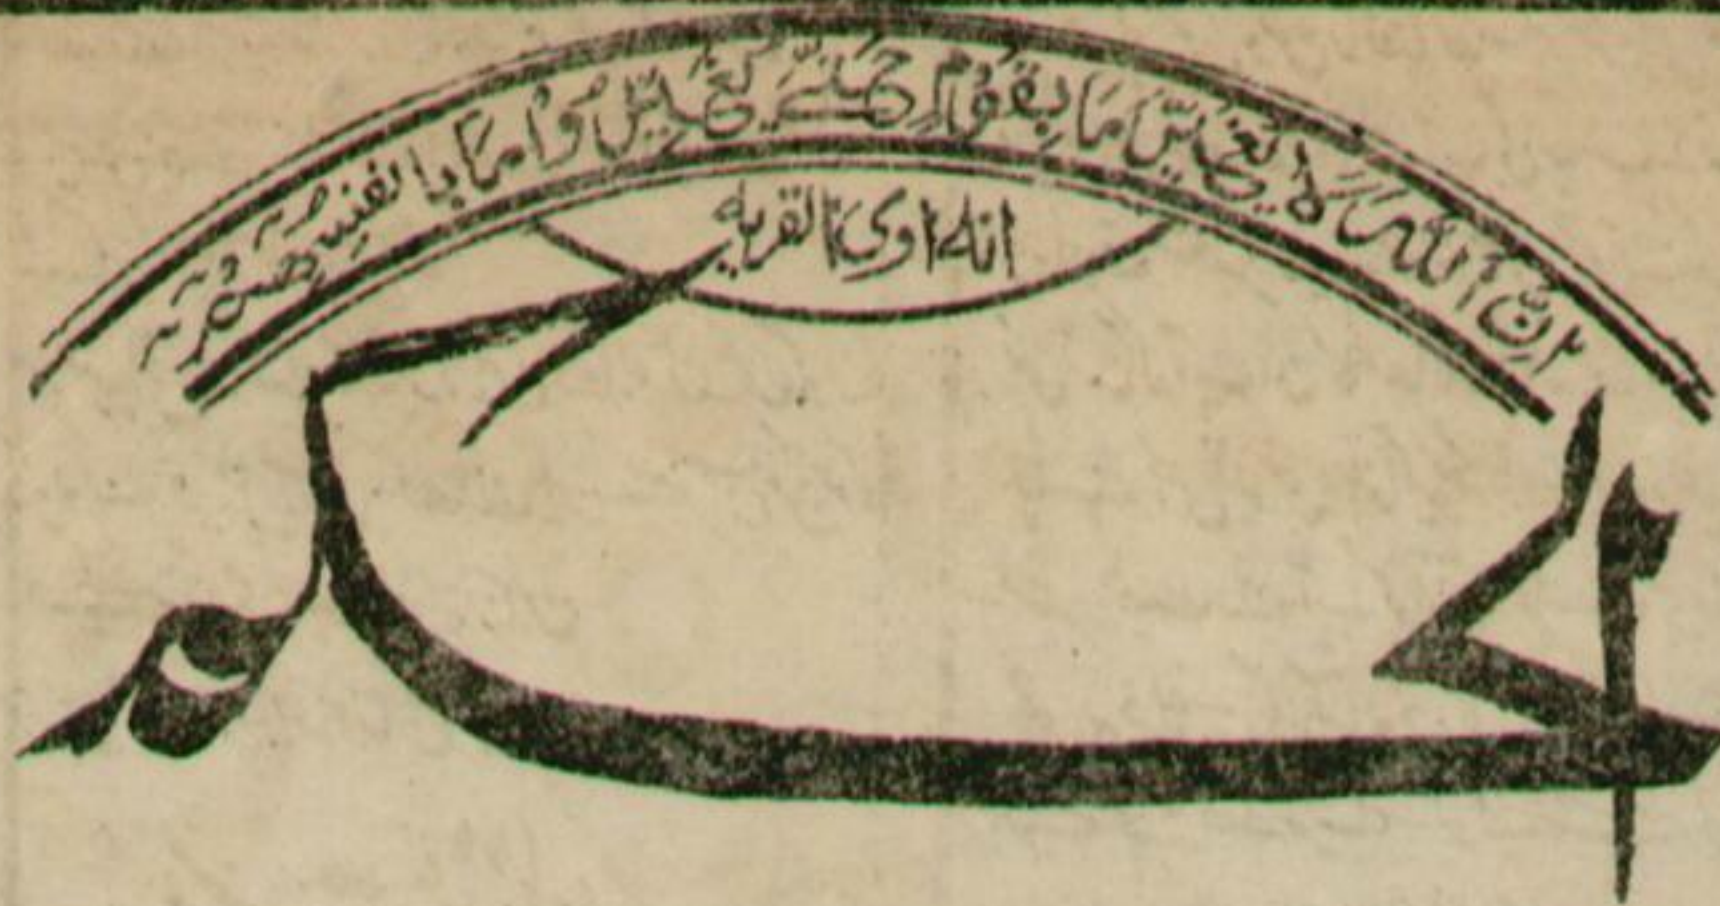 اِنَّ اللّٰهَ لَا یُغَیِّرُ مَا بِقَوْمٍ حَتّٰی یُغَیِّرُوْا مَا بِاَنْفُسِهِمْ
انه اوی القریه
الحکم